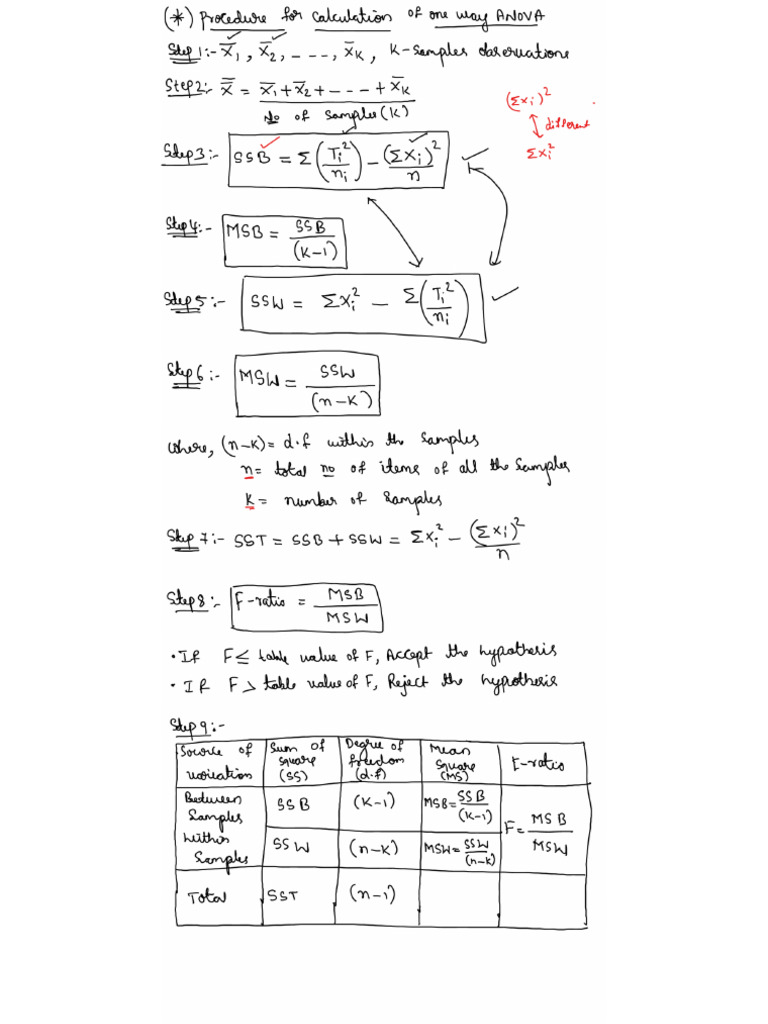 (*) Procedure for calculation of one way ANOVA
Step 1:- X̅₁, X̅₂, ----, X̅ₖ, K-Samples observations
Step 2:- X̿ = (X̅₁ + X̅₂ + --- + X̅ₖ) / No of samples (K)
(Σxᵢ)²
different
Σxᵢ²
Step 3:- SSB = Σ(Tᵢ²/nᵢ) - (Σxᵢ)²/n
Step 4:- MSB = SSB/(K-1)
Step 5:- SSW = Σxᵢ² - Σ(Tᵢ²/nᵢ)
Step 6:- MSW = SSW/(n-K)
where, (n-K) = d.f within the samples
n = total no of items of all the samples
k = number of samples
Step 7:- SST = SSB + SSW = Σxᵢ² - (Σxᵢ)²/n
Step 8:- F-ratio = MSB/MSW
• If F ≤ table value of F, Accept the hypothesis
• If F > table value of F, Reject the hypothesis
Step 9:-
Source of variation | Sum of square (SS) | Degree of freedom (d.f) | Mean Square (MS) | F-ratio
Between Samples | SSB | (K-1) | MSB = SSB/(K-1) | F = MSB/MSW
Within Samples | SSW | (n-K) | MSW = SSW/(n-K)
Total | SST | (n-1)